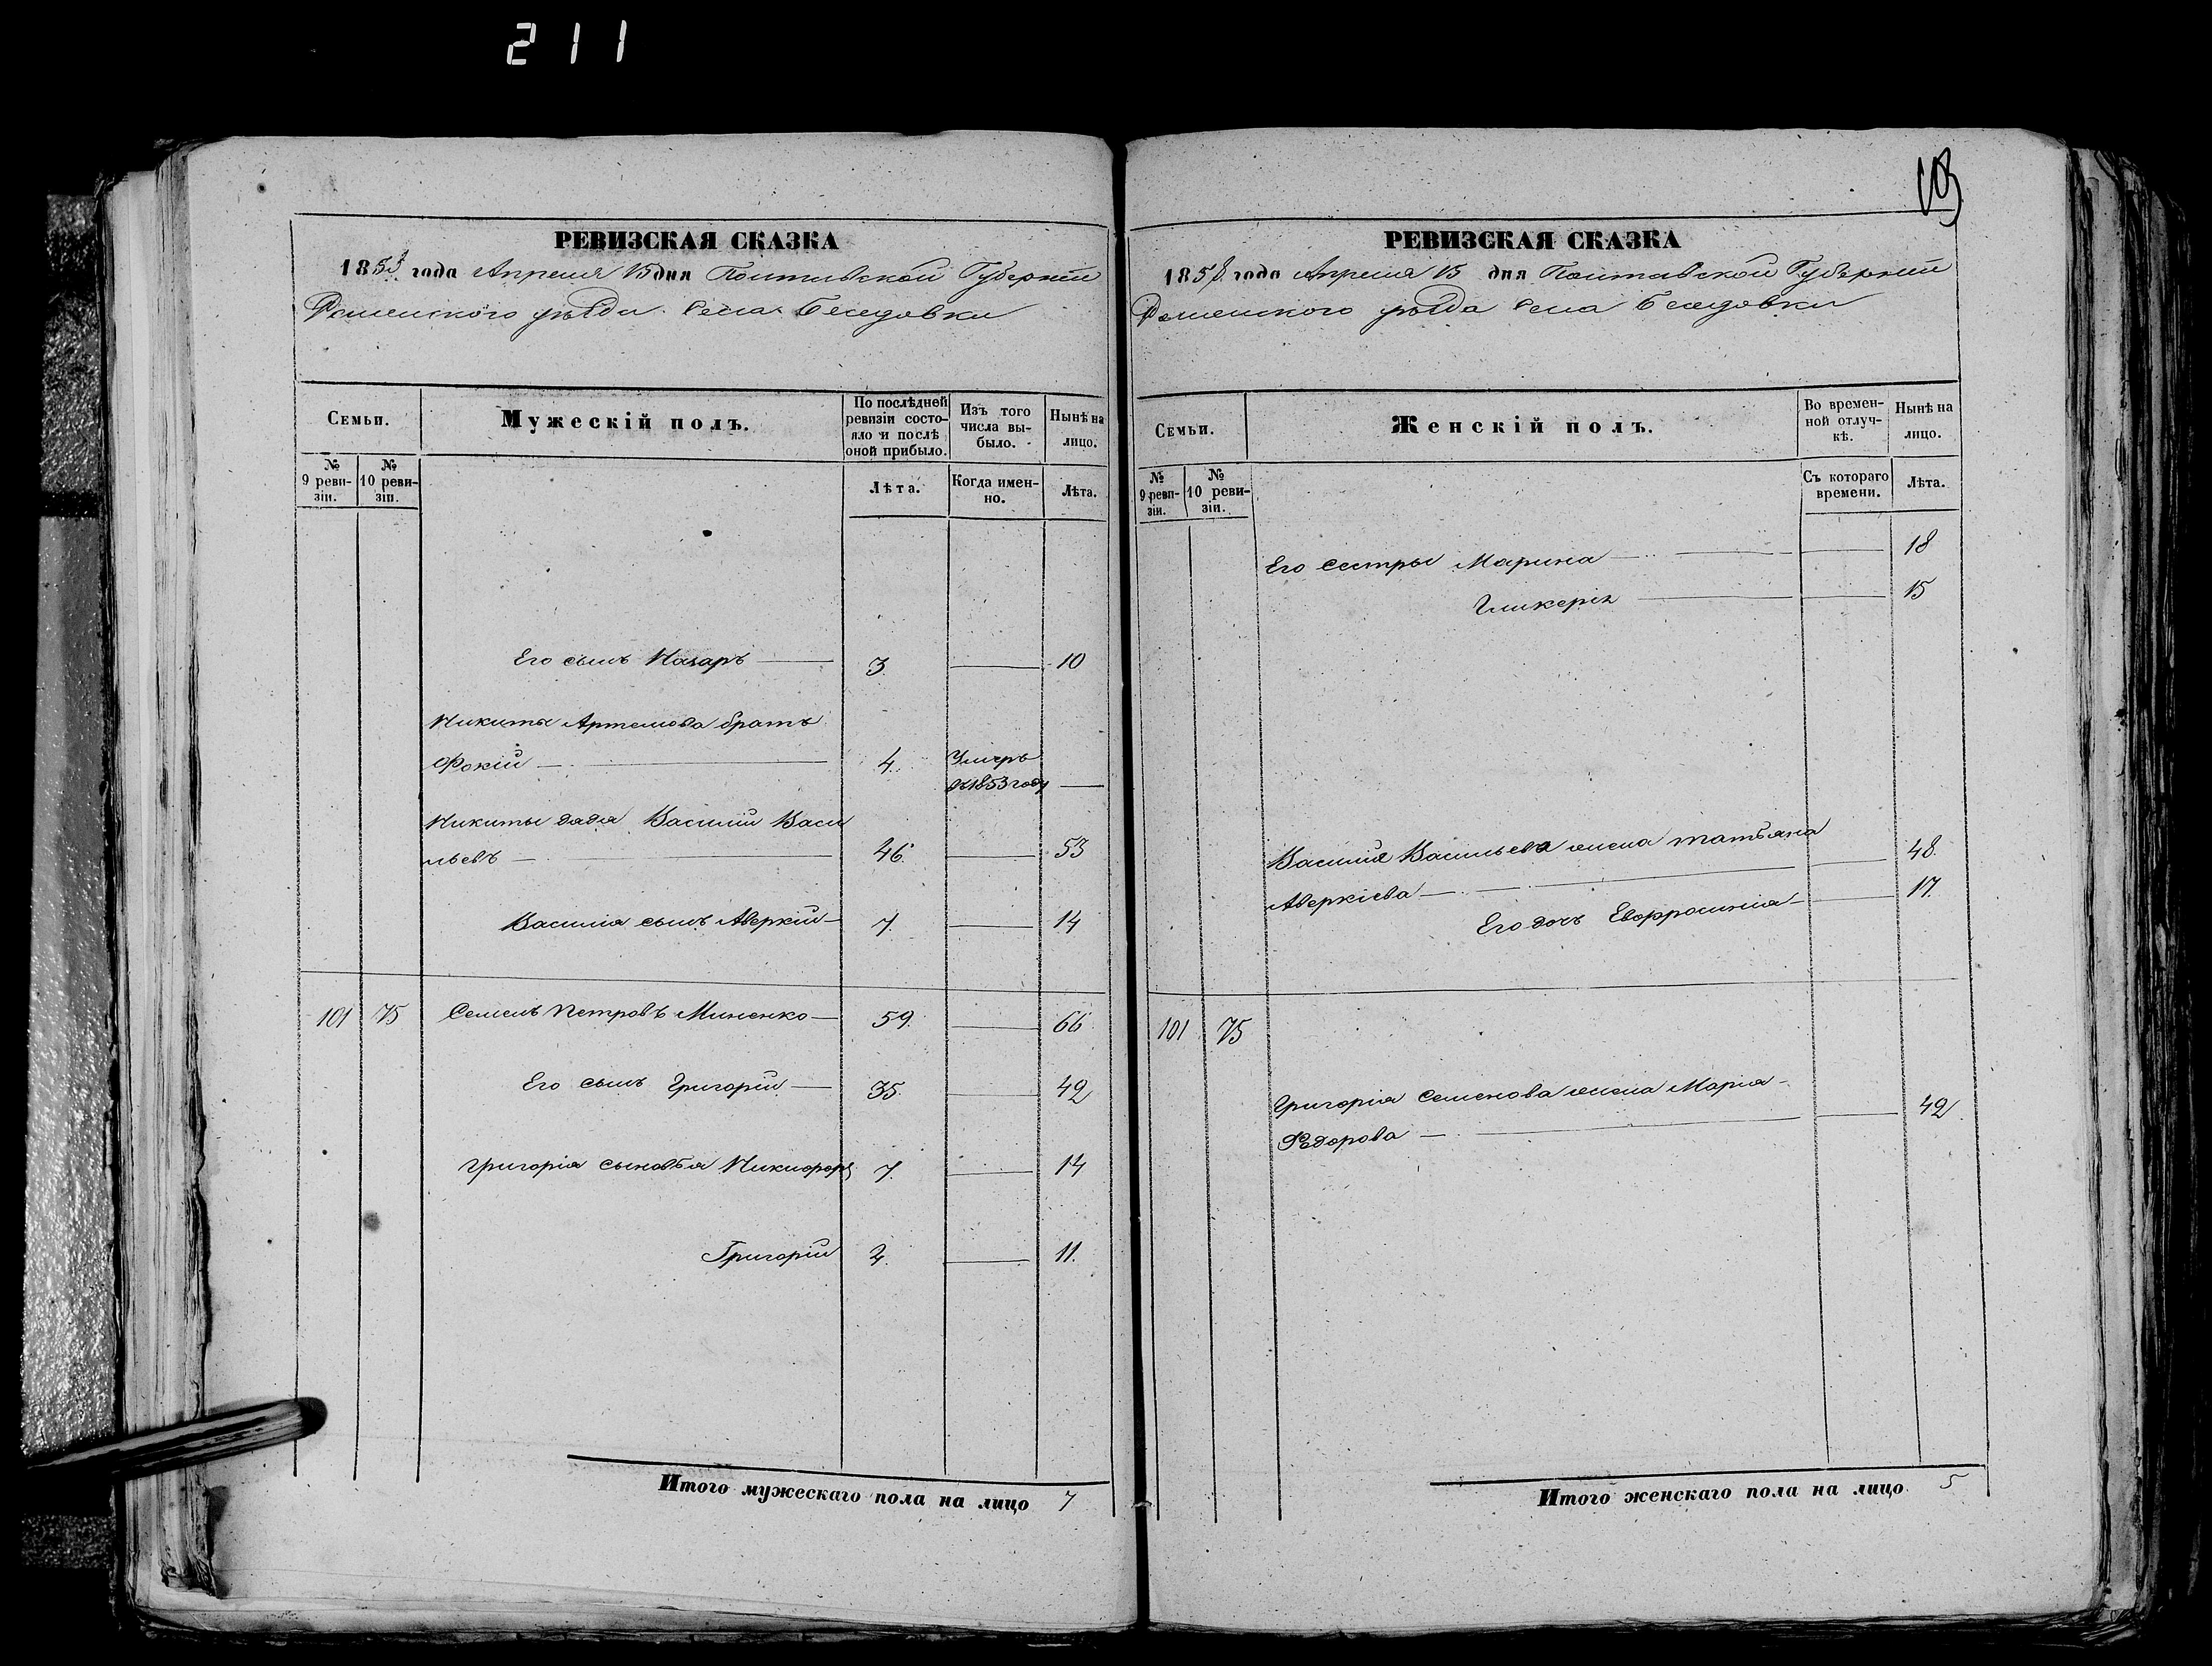 211
103
РЕВИЗСКАЯ СКАЗКА
1858 года Апреля 15 дня Полтавской Губерніи
Роменского уѣзда Села Беседовки
Семьи.
Мужескій полъ.
По послѣдней ревизіи состояло и послѣ оной прибыло.
Изъ того числа выбыло.
Нынѣ на лицо.
№ 9 ревизіи.
№ 10 ревизіи.
Лѣта.
Когда именно.
Лѣта.
Его сынъ Назаръ — 3. — 10
Никиты Артемова братъ
Фокій — 4. Умеръ
въ 1853 году —
Никиты дядя Василій Васи
льевъ — 46. — 53
Василія сынъ Аверкій — 7. — 14
101 75 Семенъ Петровъ Миненко — 59. — 66
Его сынъ Григорій — 35. — 42
Григорія сыновья Никифоръ 7. — 14
Григорій 4. — 11.
Итого мужескаго пола на лицо 7
РЕВИЗСКАЯ СКАЗКА
1858 года Апреля 15 дня Полтавской Губерніи
Роменского уѣзда Села Беседовки
Семьи.
Женскій полъ.
Во временной отлучкѣ.
Нынѣ на лицо.
№ 9 ревизіи.
№ 10 ревизіи.
Съ котораго времени.
Лѣта.
Его сестры Марина — — 18
Гликерія — — 15
Василія Васильева жена татьяна
Аверкіева — — 48.
Его дочь Евфросинія — — 17.
101 75
Григорія Семенова жена Марія
Федорова — — 42
Итого женскаго пола на лицо 5